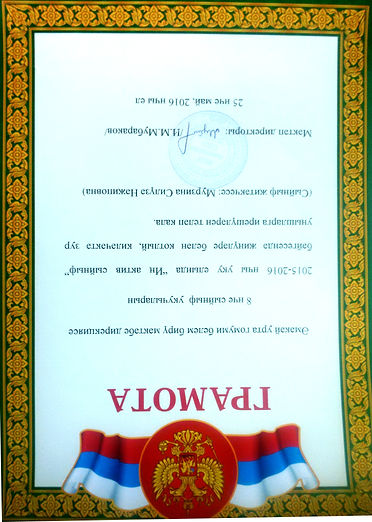 ГРАМОТА
Әмәкәй урта гомуми белем бирү мәктәбе дирекциясе
8 нче сыйныф укучыларын
2015-2016 нчы уку елында “Иң актив сыйныф”
бәйгесендә җиңүләре белән котлый, киләчәктә зур
уңышларга ирешүләрен теләп кала.
(Сыйныф җитәкчесе: Мурзина Силүзә Нәҗиповна)
Мәктәп директоры: /Н.М.Мубараков/
25 нче май, 2016 нчы ел